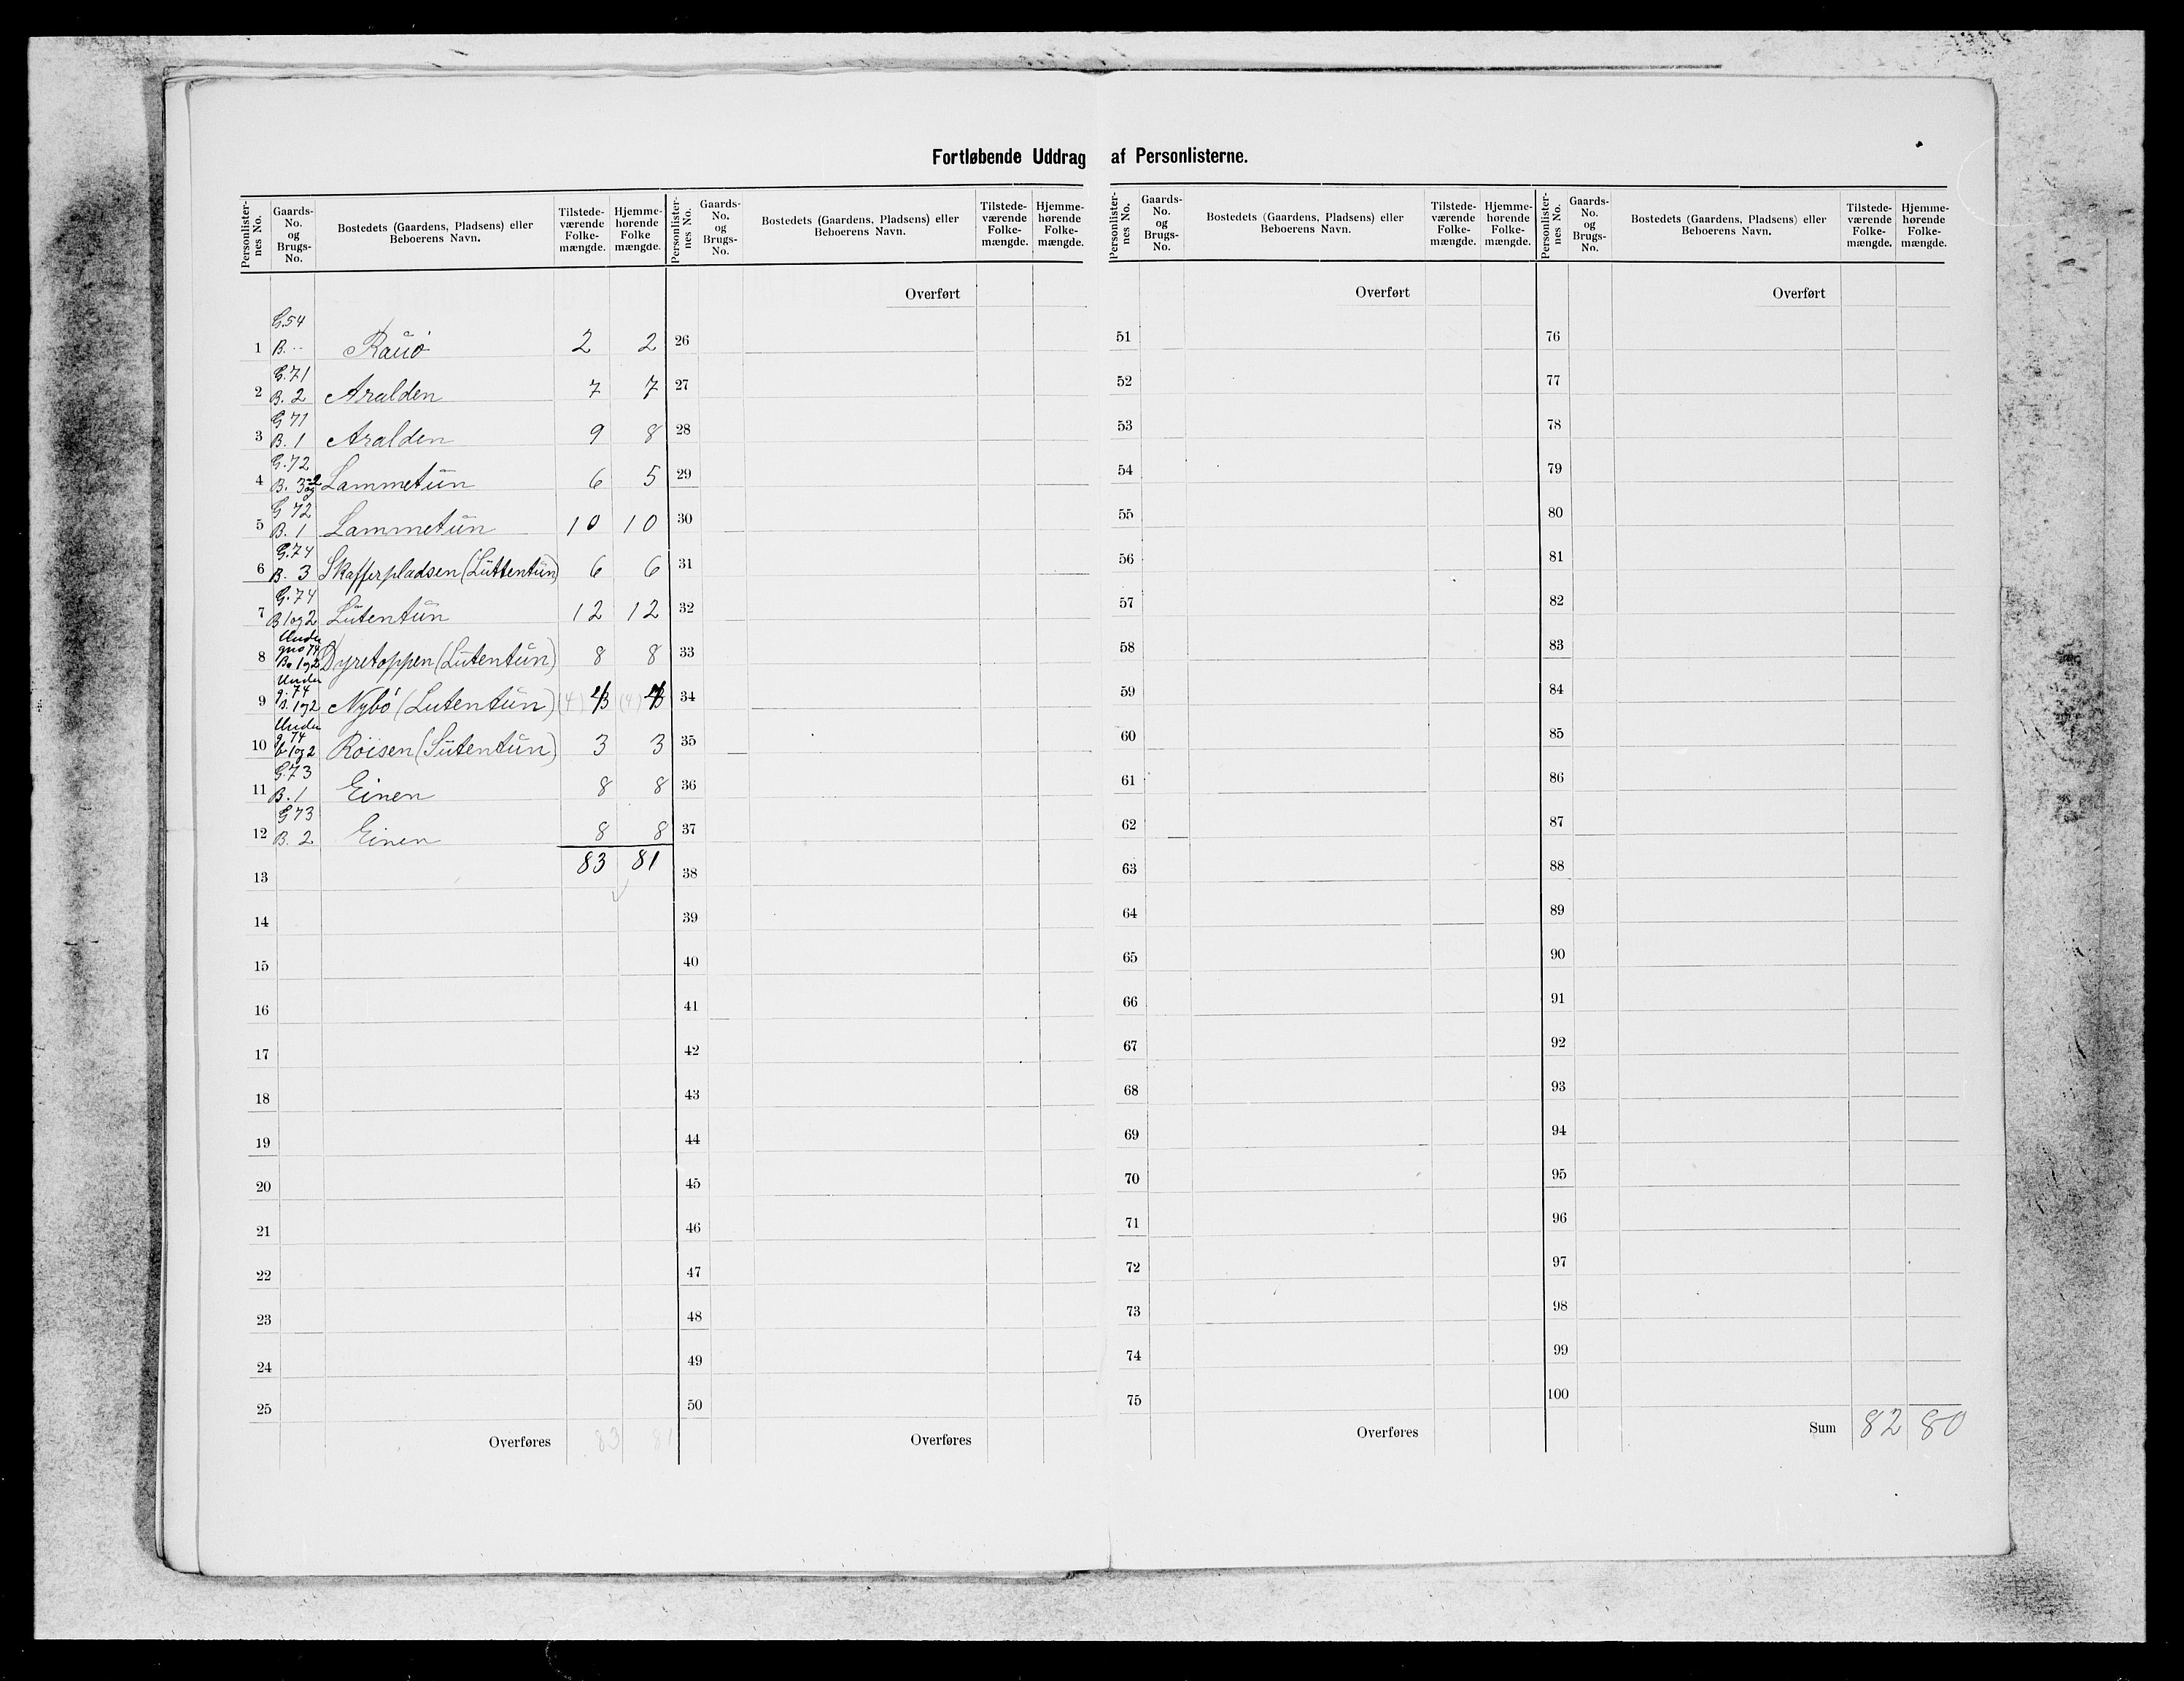 Fortløbende Uddrag af Personlisterne.
Personlister-nes No. Gaards-No. og Brugs-No. Bostedets (Gaardens, Pladsens) eller Beboerens Navn. Tilstede-værende Folke-mængde. Hjemme-hørende Folke mængde.
G.54
1 B. Rauø 2 2
G.71
2 B. 2 Aralden 7 7
G 71
3 B. 1 Aralden 9 8
G.72
4 B. 3 og 2 Lammetun 6 5
G 72
5 B. 1 Lammetun 10 10
G.74
6 B. 3 Skafferpladsen (Luttentun) 6 6
G.74
7 B 1 og 2 Lutentun 12 12
Under
gno 74
8 Bn 1 og 2 Dyretoppen (Lutentun) 8 8
Under
g. 74
9 b. 1 og 2 Nybø (Lutentun) (4) 3 (4) 3
Under
g 74
10 b 1 og 2 Røisen (Lutentun) 3 3
G.73
11 B. 1 Einen 8 8
G 73
12 B. 2 Einen 8 8
83 81
13
14
15
16
17
18
19
20
21
22
23
24
25
Overføres 83 81
Personlister-nes No. Gaards-No. og Brugs-No. Bostedets (Gaardens, Pladsens) eller Beboerens Navn. Tilstede-værende Folke-mængde. Hjemme-hørende Folke-mængde.
Overført
26
27
28
29
30
31
32
33
34
35
36
37
38
39
40
41
42
43
44
45
46
47
48
49
50
Overføres
Personlister-nes No. Gaards-No. og Brugs-No. Bostedets (Gaardens, Pladsens) eller Beboerens Navn. Tilstede-værende Folke-mængde. Hjemme-hørende Folke-mængde.
Overført
51
52
53
54
55
56
57
58
59
60
61
62
63
64
65
66
67
68
69
70
71
72
73
74
75
Overføres
Personlister-nes No. Gaards-No. og Brugs-No. Bostedets (Gaardens, Pladsens) eller Beboerens Navn. Tilstede-værende Folke-mængde. Hjemme-hørende Folke-mængde.
Overført
76
77
78
79
80
81
82
83
84
85
86
87
88
89
90
91
92
93
94
95
96
97
98
99
100
Sum 82 80